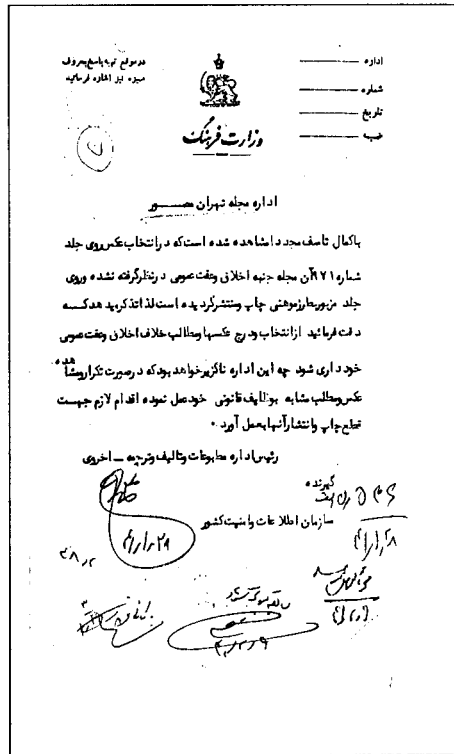 در موقع توجه پاسخ بحروف
میزه نیز اشاره فرمائید
اداره
شماره
تاریخ
وزارت فرهنگ
اداره مجله تهران مصور
باکمال تاسف مجددا مشاهده شده است که در انتخاب عکس روی جلد
شماره ۹۷۱ آن مجله جنبه اخلاقی وعفت عمومی درنظرگرفته نشده وروی
جلد مزبوربطرز موهنی چاپ ومنتشرگردیده است لذا تذکرمیدهد که
دقت فرمائید ازانتخاب ودرج عکسها ومطالب خلاف اخلاق وعفت عمومی
خودداری شود چه این اداره ناگزیرخواهدبود که درصورت تکرارومشاهده
عکس ومطلب مشابه بوظایف قانونی خودعمل نموده اقدام لازم جهت
قطع چاپ وانتشارآنهابعمل آورد .
رئیس اداره مطبوعات وتالیف وترجمه - اخروی
گیرنده
سازمان اطلاعات وامنیت کشور